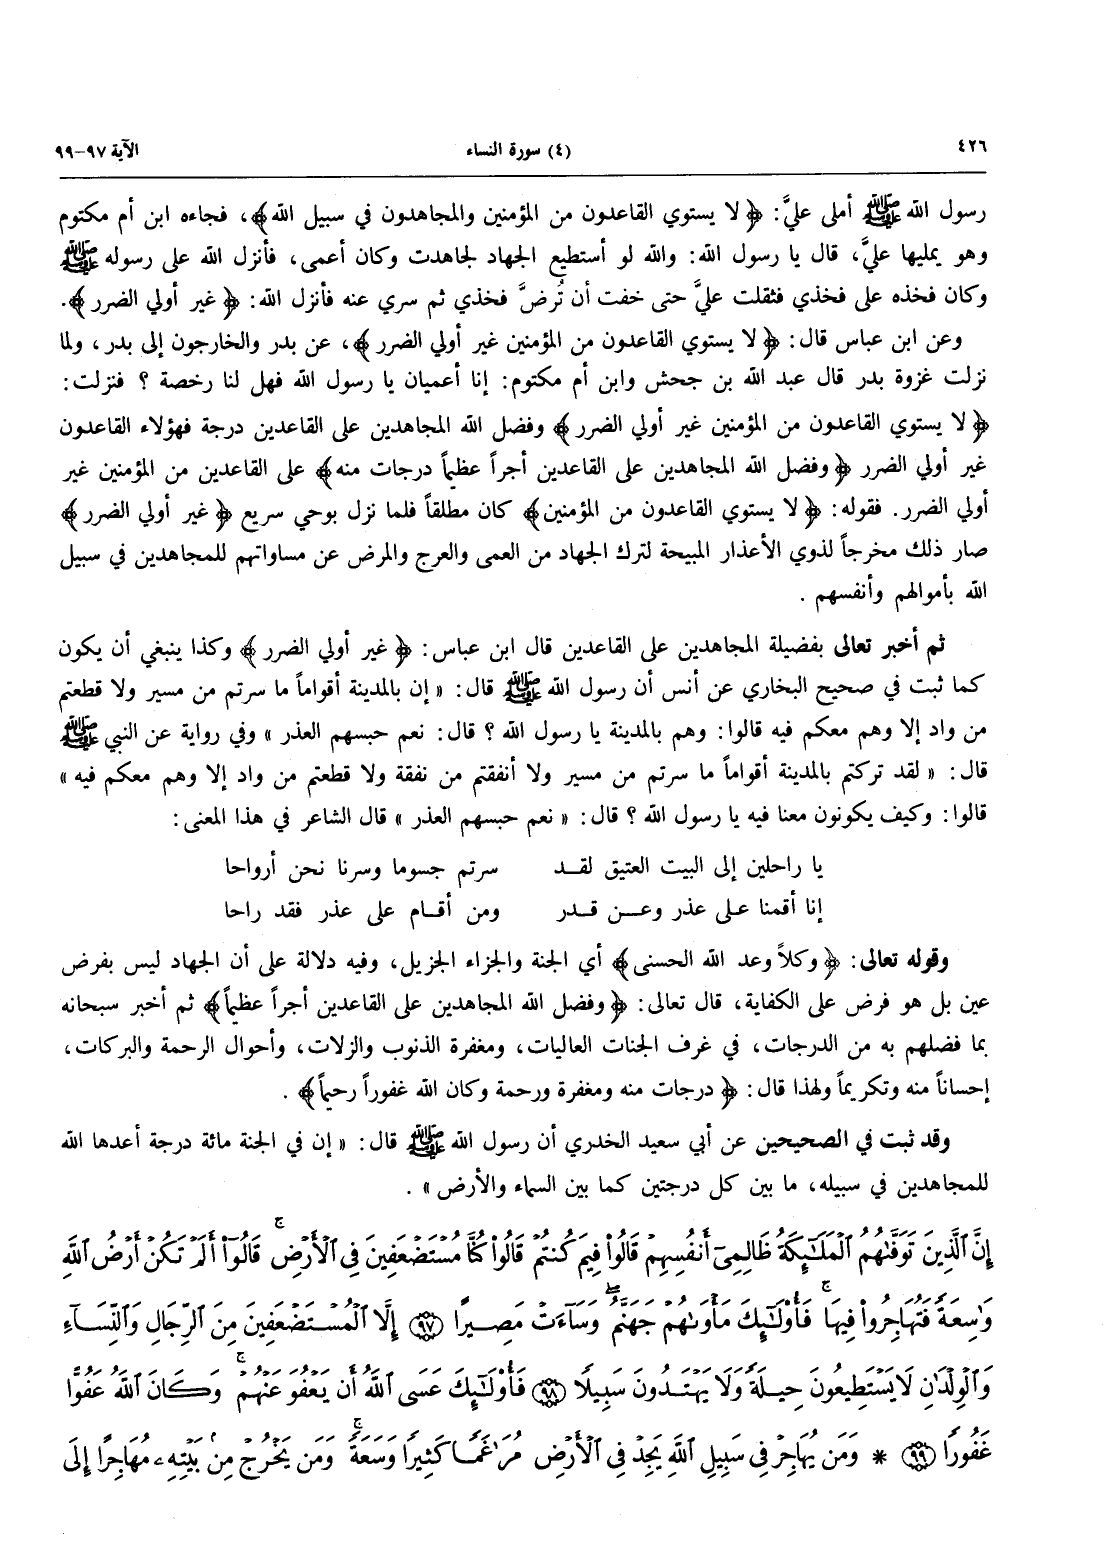 ٤٢٦ (٤) سورة النساء الآية ٩٧-٩٩
رسول الله ﷺ أملى عليَّ: ﴿ لا يستوي القاعدون من المؤمنين والمجاهدون في سبيل الله﴾، فجاءه ابن أم مكتوم
وهو يمليها عليَّ، قال يا رسول الله: والله لو أستطيع الجهاد لجاهدت وكان أعمى، فأنزل الله على رسوله ﷺ
وكان فخذه على فخذي فثقلت عليَّ حتى خفت أن تُرضَّ فخذي ثم سري عنه فأنزل الله: ﴿ غير أولي الضرر ﴾.
وعن ابن عباس قال: ﴿ لا يستوي القاعدون من المؤمنين غير أولي الضرر ﴾، عن بدر والخارجون إلى بدر، ولما
نزلت غزوة بدر قال عبد الله بن جحش وابن أم مكتوم: إنا أعميان يا رسول الله فهل لنا رخصة ؟ فنزلت:
﴿ لا يستوي القاعدون من المؤمنين غير أولي الضرر ﴾ وفضل الله المجاهدين على القاعدين درجة فهؤلاء القاعدون
غير أولي الضرر ﴿وفضل الله المجاهدين على القاعدين أجراً عظيماً درجات منه﴾ على القاعدين من المؤمنين غير
أولي الضرر. فقوله: ﴿ لا يستوي القاعدون من المؤمنين﴾ كان مطلقاً فلما نزل بوحي سريع ﴿ غير أولي الضرر ﴾
صار ذلك مخرجاً لذوي الأعذار المبيحة لترك الجهاد من العمى والعرج والمرض عن مساواتهم للمجاهدين في سبيل
الله بأموالهم وأنفسهم .
ثم أخبر تعالى بفضيلة المجاهدين على القاعدين قال ابن عباس: ﴿ غير أولي الضرر ﴾ وكذا ينبغي أن يكون
كما ثبت في صحيح البخاري عن أنس أن رسول الله ﷺ قال: « إن بالمدينة أقواماً ما سرتم من مسير ولا قطعتم
من واد إلا وهم معكم فيه قالوا: وهم بالمدينة يا رسول الله ؟ قال: نعم حبسهم العذر » وفي رواية عن النبي ﷺ
قال: « لقد تركتم بالمدينة أقواماً ما سرتم من مسير ولا أنفقتم من نفقة ولا قطعتم من واد إلا وهم معكم فيه »
قالوا: وكيف يكونون معنا فيه يا رسول الله ؟ قال: « نعم حبسهم العذر » قال الشاعر في هذا المعنى:
يا راحلين إلى البيت العتيق لقد سرتم جسوما وسرنا نحن أرواحا
إنا أقمنا على عذر وعن قدر ومن أقام على عذر فقد راحا
وقوله تعالى: ﴿وكلاً وعد الله الحسنى﴾ أي الجنة والجزاء الجزيل، وفيه دلالة على أن الجهاد ليس بفرض
عين بل هو فرض على الكفاية، قال تعالى: ﴿وفضل الله المجاهدين على القاعدين أجراً عظيماً﴾ ثم أخبر سبحانه
بما فضلهم به من الدرجات، في غرف الجنات العاليات، ومغفرة الذنوب والزلات، وأحوال الرحمة والبركات،
إحساناً منه وتكريماً ولهذا قال: ﴿ درجات منه ومغفرة ورحمة وكان الله غفوراً رحيماً﴾ .
وقد ثبت في الصحيحين عن أبي سعيد الخدري أن رسول الله ﷺ قال: « إن في الجنة مائة درجة أعدها الله
للمجاهدين في سبيله، ما بين كل درجتين كما بين السماء والأرض » .
إِنَّ ٱلَّذِينَ تَوَفَّىٰهُمُ ٱلْمَلَـٰٓئِكَةُ ظَالِمِىٓ أَنفُسِهِمْ قَالُوا۟ فِيمَ كُنتُمْ قَالُوا۟ كُنَّا مُسْتَضْعَفِينَ فِى ٱلْأَرْضِ ۚ قَالُوٓا۟ أَلَمْ تَكُنْ أَرْضُ ٱللَّهِ
وَٰسِعَةً فَتُهَاجِرُوا۟ فِيهَا ۚ فَأُو۟لَـٰٓئِكَ مَأْوَىٰهُمْ جَهَنَّمُ ۖ وَسَآءَتْ مَصِيرًا ﴿٩٧﴾ إِلَّا ٱلْمُسْتَضْعَفِينَ مِنَ ٱلرِّجَالِ وَٱلنِّسَآءِ
وَٱلْوِلْدَٰنِ لَا يَسْتَطِيعُونَ حِيلَةً وَلَا يَهْتَدُونَ سَبِيلًا ﴿٩٨﴾ فَأُو۟لَـٰٓئِكَ عَسَى ٱللَّهُ أَن يَعْفُوَ عَنْهُمْ ۚ وَكَانَ ٱللَّهُ عَفُوًّا
غَفُورًا ﴿٩٩﴾ * وَمَن يُهَاجِرْ فِى سَبِيلِ ٱللَّهِ يَجِدْ فِى ٱلْأَرْضِ مُرَٰغَمًا كَثِيرًا وَسَعَةً ۚ وَمَن يَخْرُجْ مِنۢ بَيْتِهِۦ مُهَاجِرًا إِلَى